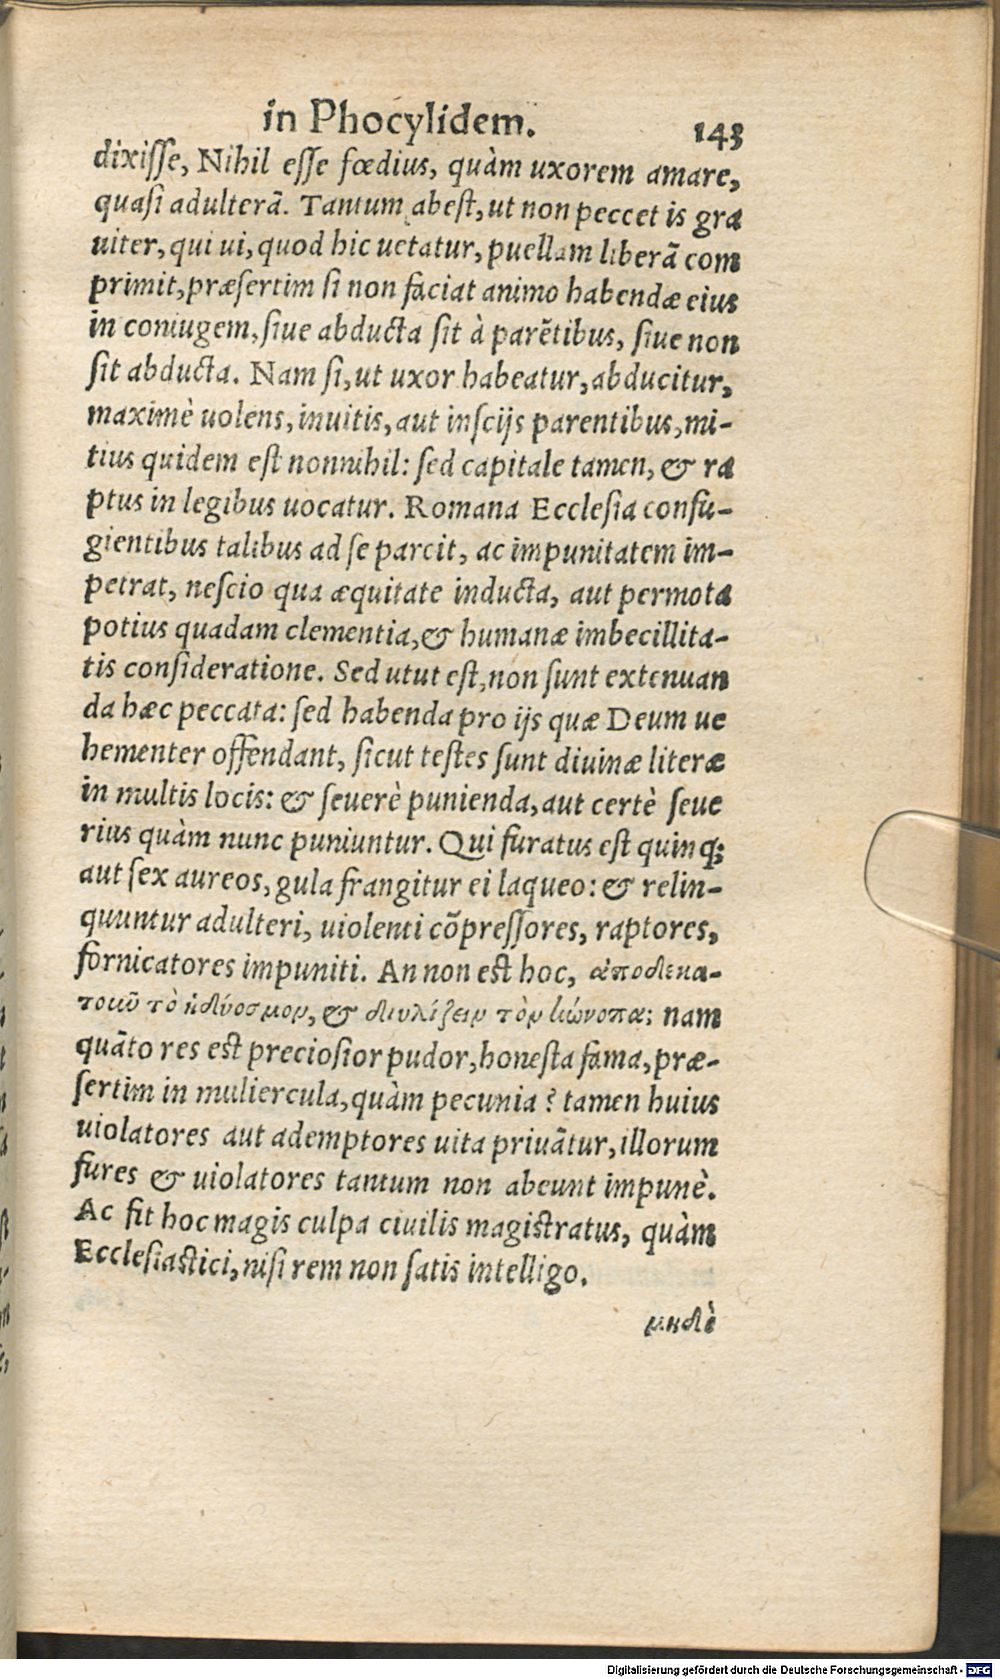 in Phocylidem. 143
dixiſſe, Nihil eſſe fœdius, quàm uxorem amare,
quaſi adulterã. Tantum abeſt, ut non peccet is gra
uiter, qui ui, quod hic uetatur, puellam liberã com
primit, præſertim ſi non faciat animo habendæ eius
in coniugem, ſiue abducta ſit à parẽtibus, ſiue non
ſit abducta. Nam ſi, ut uxor habeatur, abducitur,
maximè uolens, inuitis, aut inſcijs parentibus, mi-
tius quidem eſt nonnihil: ſed capitale tamen, & ra
ptus in legibus uocatur. Romana Eccleſia confu-
gientibus talibus ad ſe parcit, ac impunitatem im-
petrat, neſcio qua æquitate inducta, aut permota
potius quadam clementia, & humanæ imbecillita-
tis conſideratione. Sed utut eſt, non ſunt extenuan
da hæc peccata: ſed habenda pro ijs quæ Deum ue
hementer offendant, ſicut teſtes ſunt diuinæ literæ
in multis locis: & ſeuerè punienda, aut certè ſeue
rius quàm nunc puniuntur. Qui furatus eſt quinq;
aut ſex aureos, gula frangitur ei laqueo: & relin-
quuntur adulteri, uiolenti cõpreſſores, raptores,
fornicatores impuniti. An non eſt hoc, ἀποδεκα-
τοιῶ τὸ ἡδύοσμον, & διυλίζειν τὸν κώνοπα; nam
quãto res eſt precioſior pudor, honeſta fama, præ-
ſertim in muliercula, quàm pecunia? tamen huius
uiolatores aut ademptores uita priuãtur, illorum
fures & uiolatores tantum non abeunt impunè.
Ac fit hoc magis culpa ciuilis magiſtratus, quàm
Eccleſiaſtici, niſi rem non ſatis intelligo.
μηδὲ
Digitalisierung gefördert durch die Deutsche Forschungsgemeinschaft - DFG